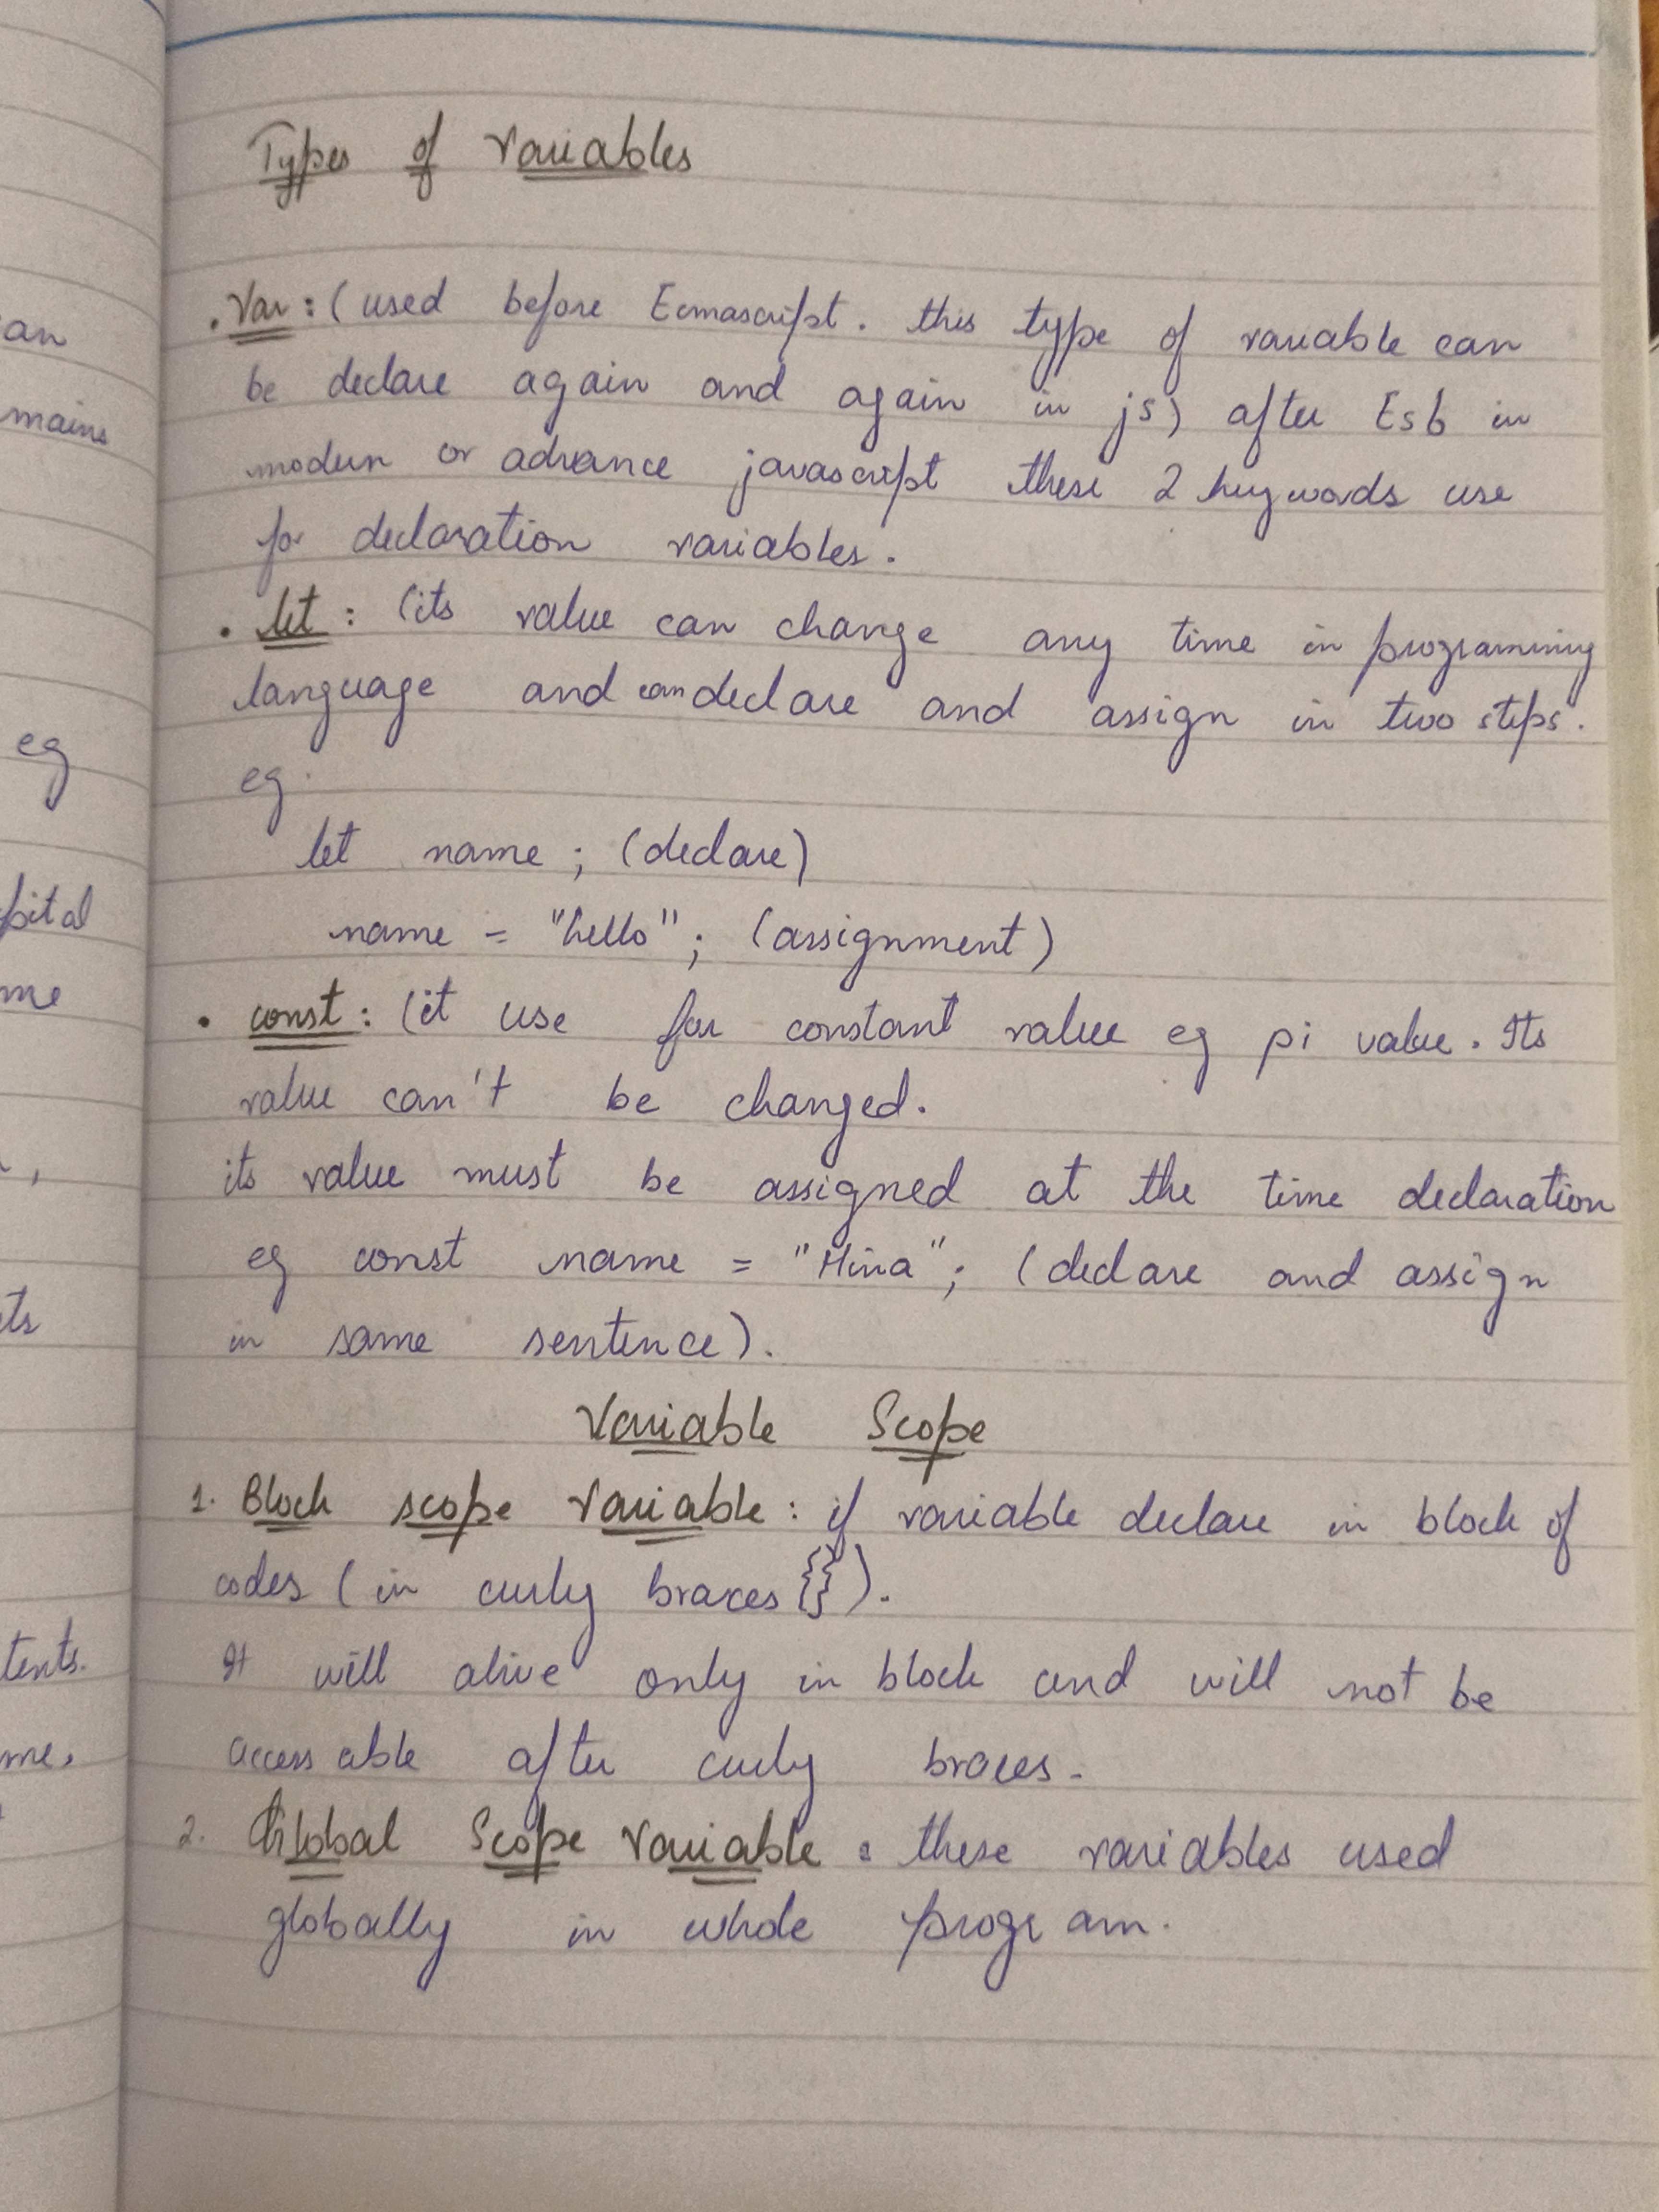 Types of Variables
. Var : ( used before Ecmascript . this type of variable can
be declare again and again in js) after Es6 in
modern or advance javascript these 2 keywords use
for declaration variables .
. let : (its value can change any time in programing
language and can declare and assign in two steps .
eg
let name ; (declare)
name = "hello" ; (assignment)
. const : (it use for constant value eg pi value . Its
value can't be changed .
its value must be assigned at the time declaration
eg const name = " " ; (declare and assign
in same sentence ) .
Variable Scope
1. Block scope Variable : if variable declare in block of
codes ( in curly braces {} ) .
It will alive only in block and will not be
accessable after curly braces .
2. Global Scope Variable : these variables used
globally in whole program .
an
mains
eg
pital
me
,
ts
tents.
me,